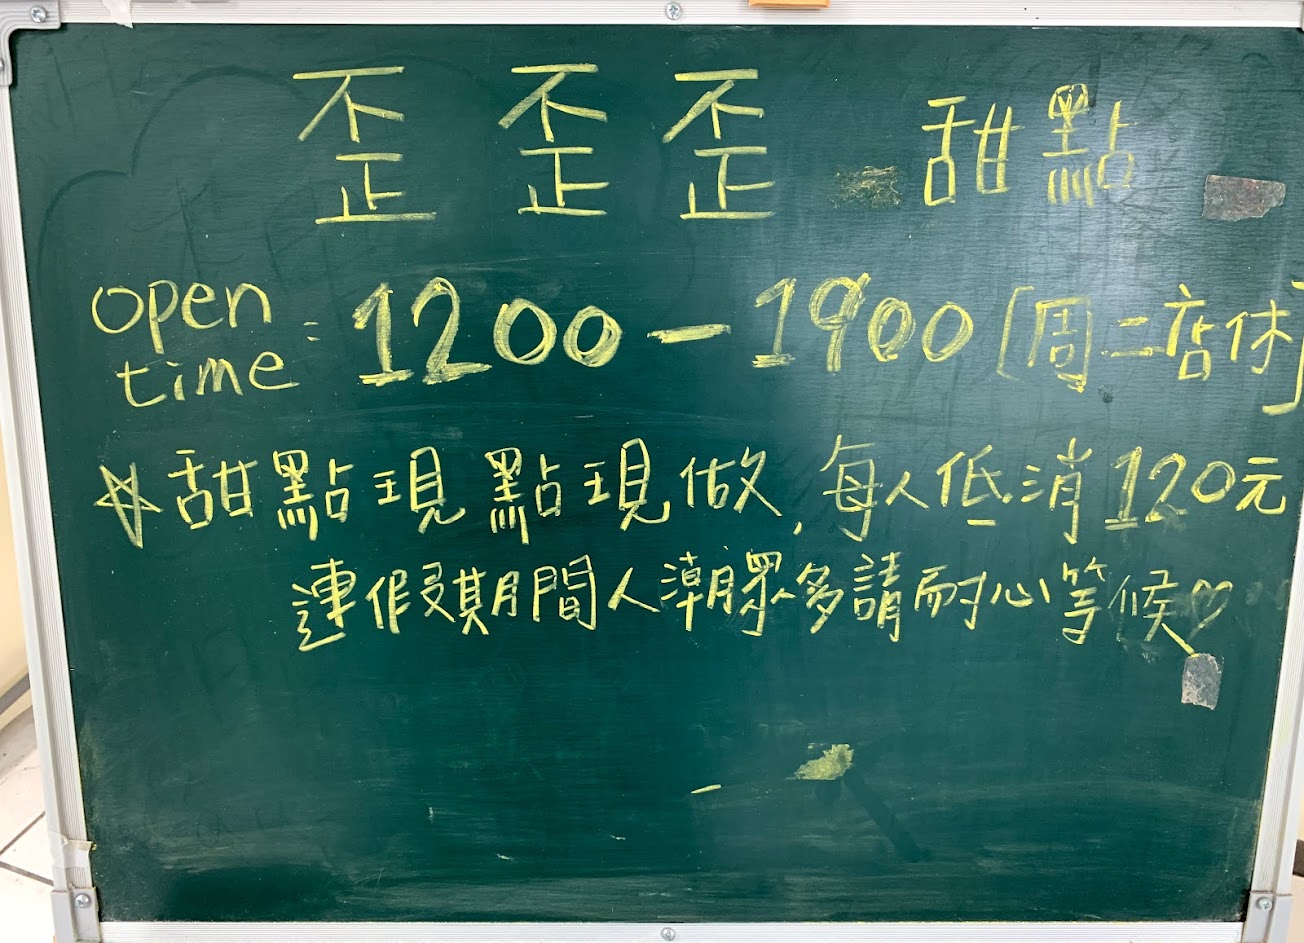 歪歪歪 甜點
open time: 1200－1900 [周二店休]
☆甜點現點現做,每人低消120元
連假期間人潮眾多請耐心等候♡